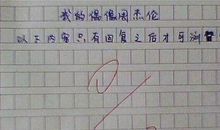 我的偶像周杰伦
以下内容只有回复之后才可浏览